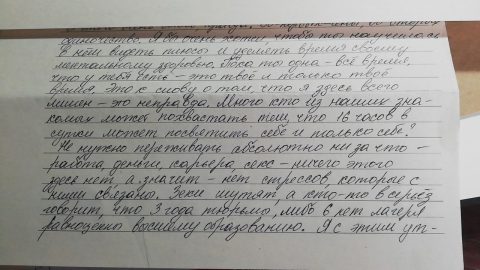 одиночество. Я бы очень хотел, чтобы ты научилась
в нём видеть плюсы и уделять время своему
ментальному здоровью. Пока ты одна - всё время,
что у тебя есть - это твоё и только твоё
время. Это к слову о том, что я здесь всего
лишен - это неправда. Много кто из наших зна-
комых может похвастать тем, что 16 часов в
сутки может посвятить себе и только себе?
Не нужно переживать абсолютно ни за что -
работа, деньги, карьера, секс - ничего этого
здесь нет, а значит - нет стрессов, которые с
ними связаны. Зеки шутят, а кто-то всерьёз
говорит, что 3 года тюрьмы, либо 6 лет лагеря
равноценны высшему образованию. Я с этим ут-